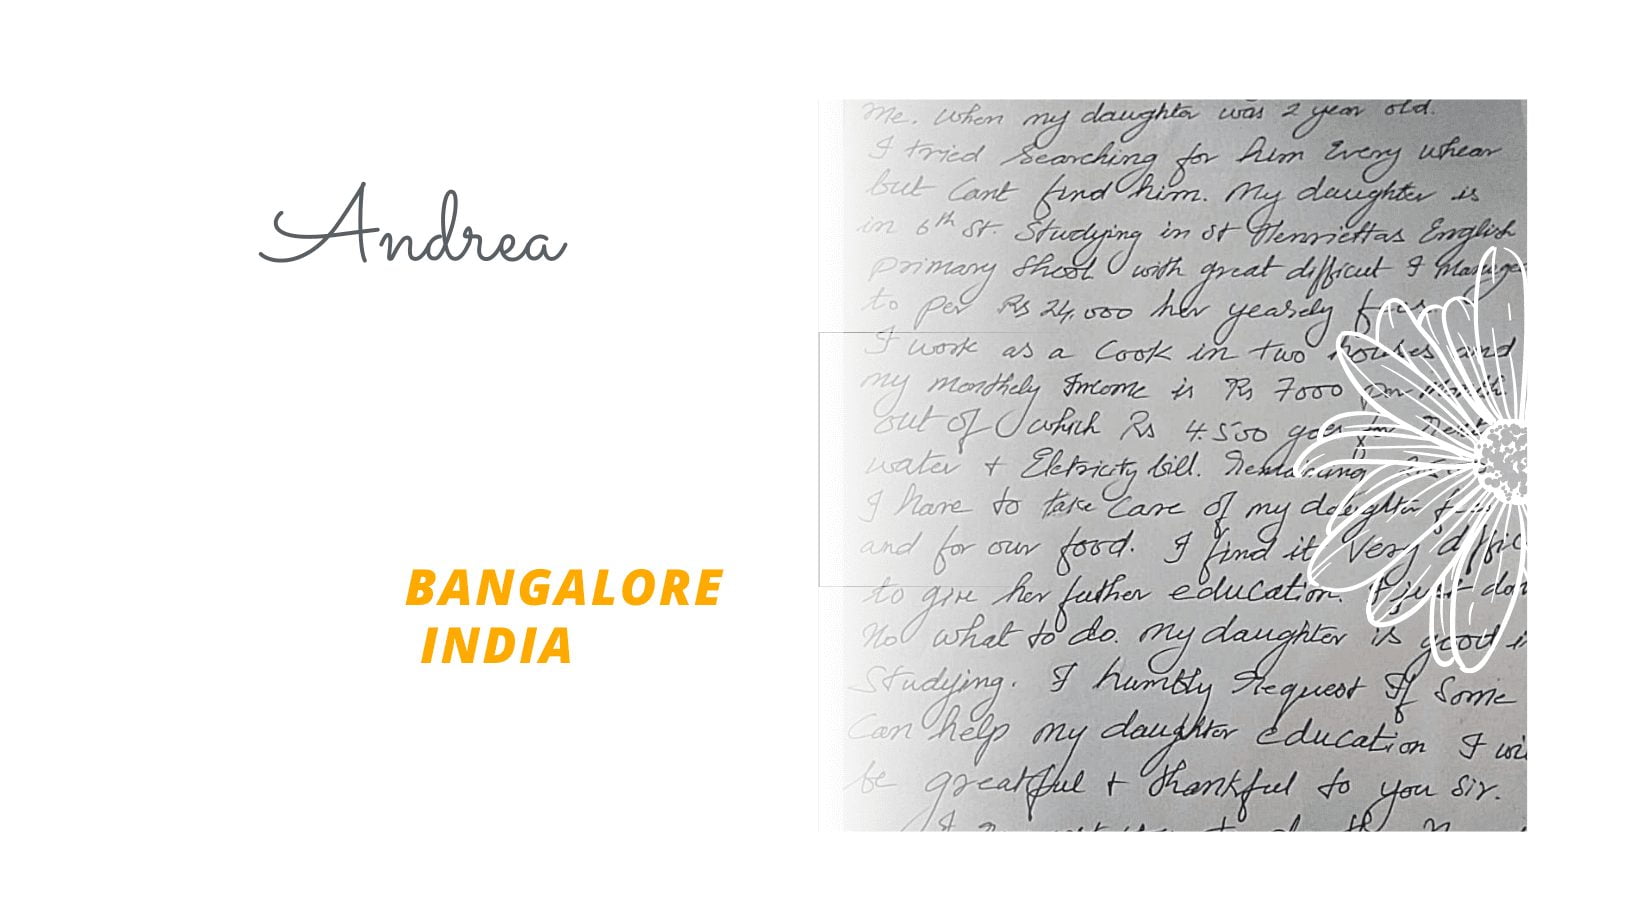 Andrea
BANGALORE
INDIA
me. when my daughter was 2 year old.
I tried Searching for him Every whear
but Cant find him. My daughter is
in 6th St. Studying in St Henriettas English
primary Shool with great difficut I manage
to per Rs 24,000 her yearely
I work as a Cook in two houses and
my monthely Income is Rs 7000 per month
out of which Rs 4.500 goes for Rent
water + Eletricity bill. Remaining
I have to take Care of my daughter
and for our food. I find it very diffic
to give her futher education. I just don
No what to do. My daughter is good in
Studying. I humbly request If Some
Can help my daughter education I wi
be greatful + thankful to you Sir.